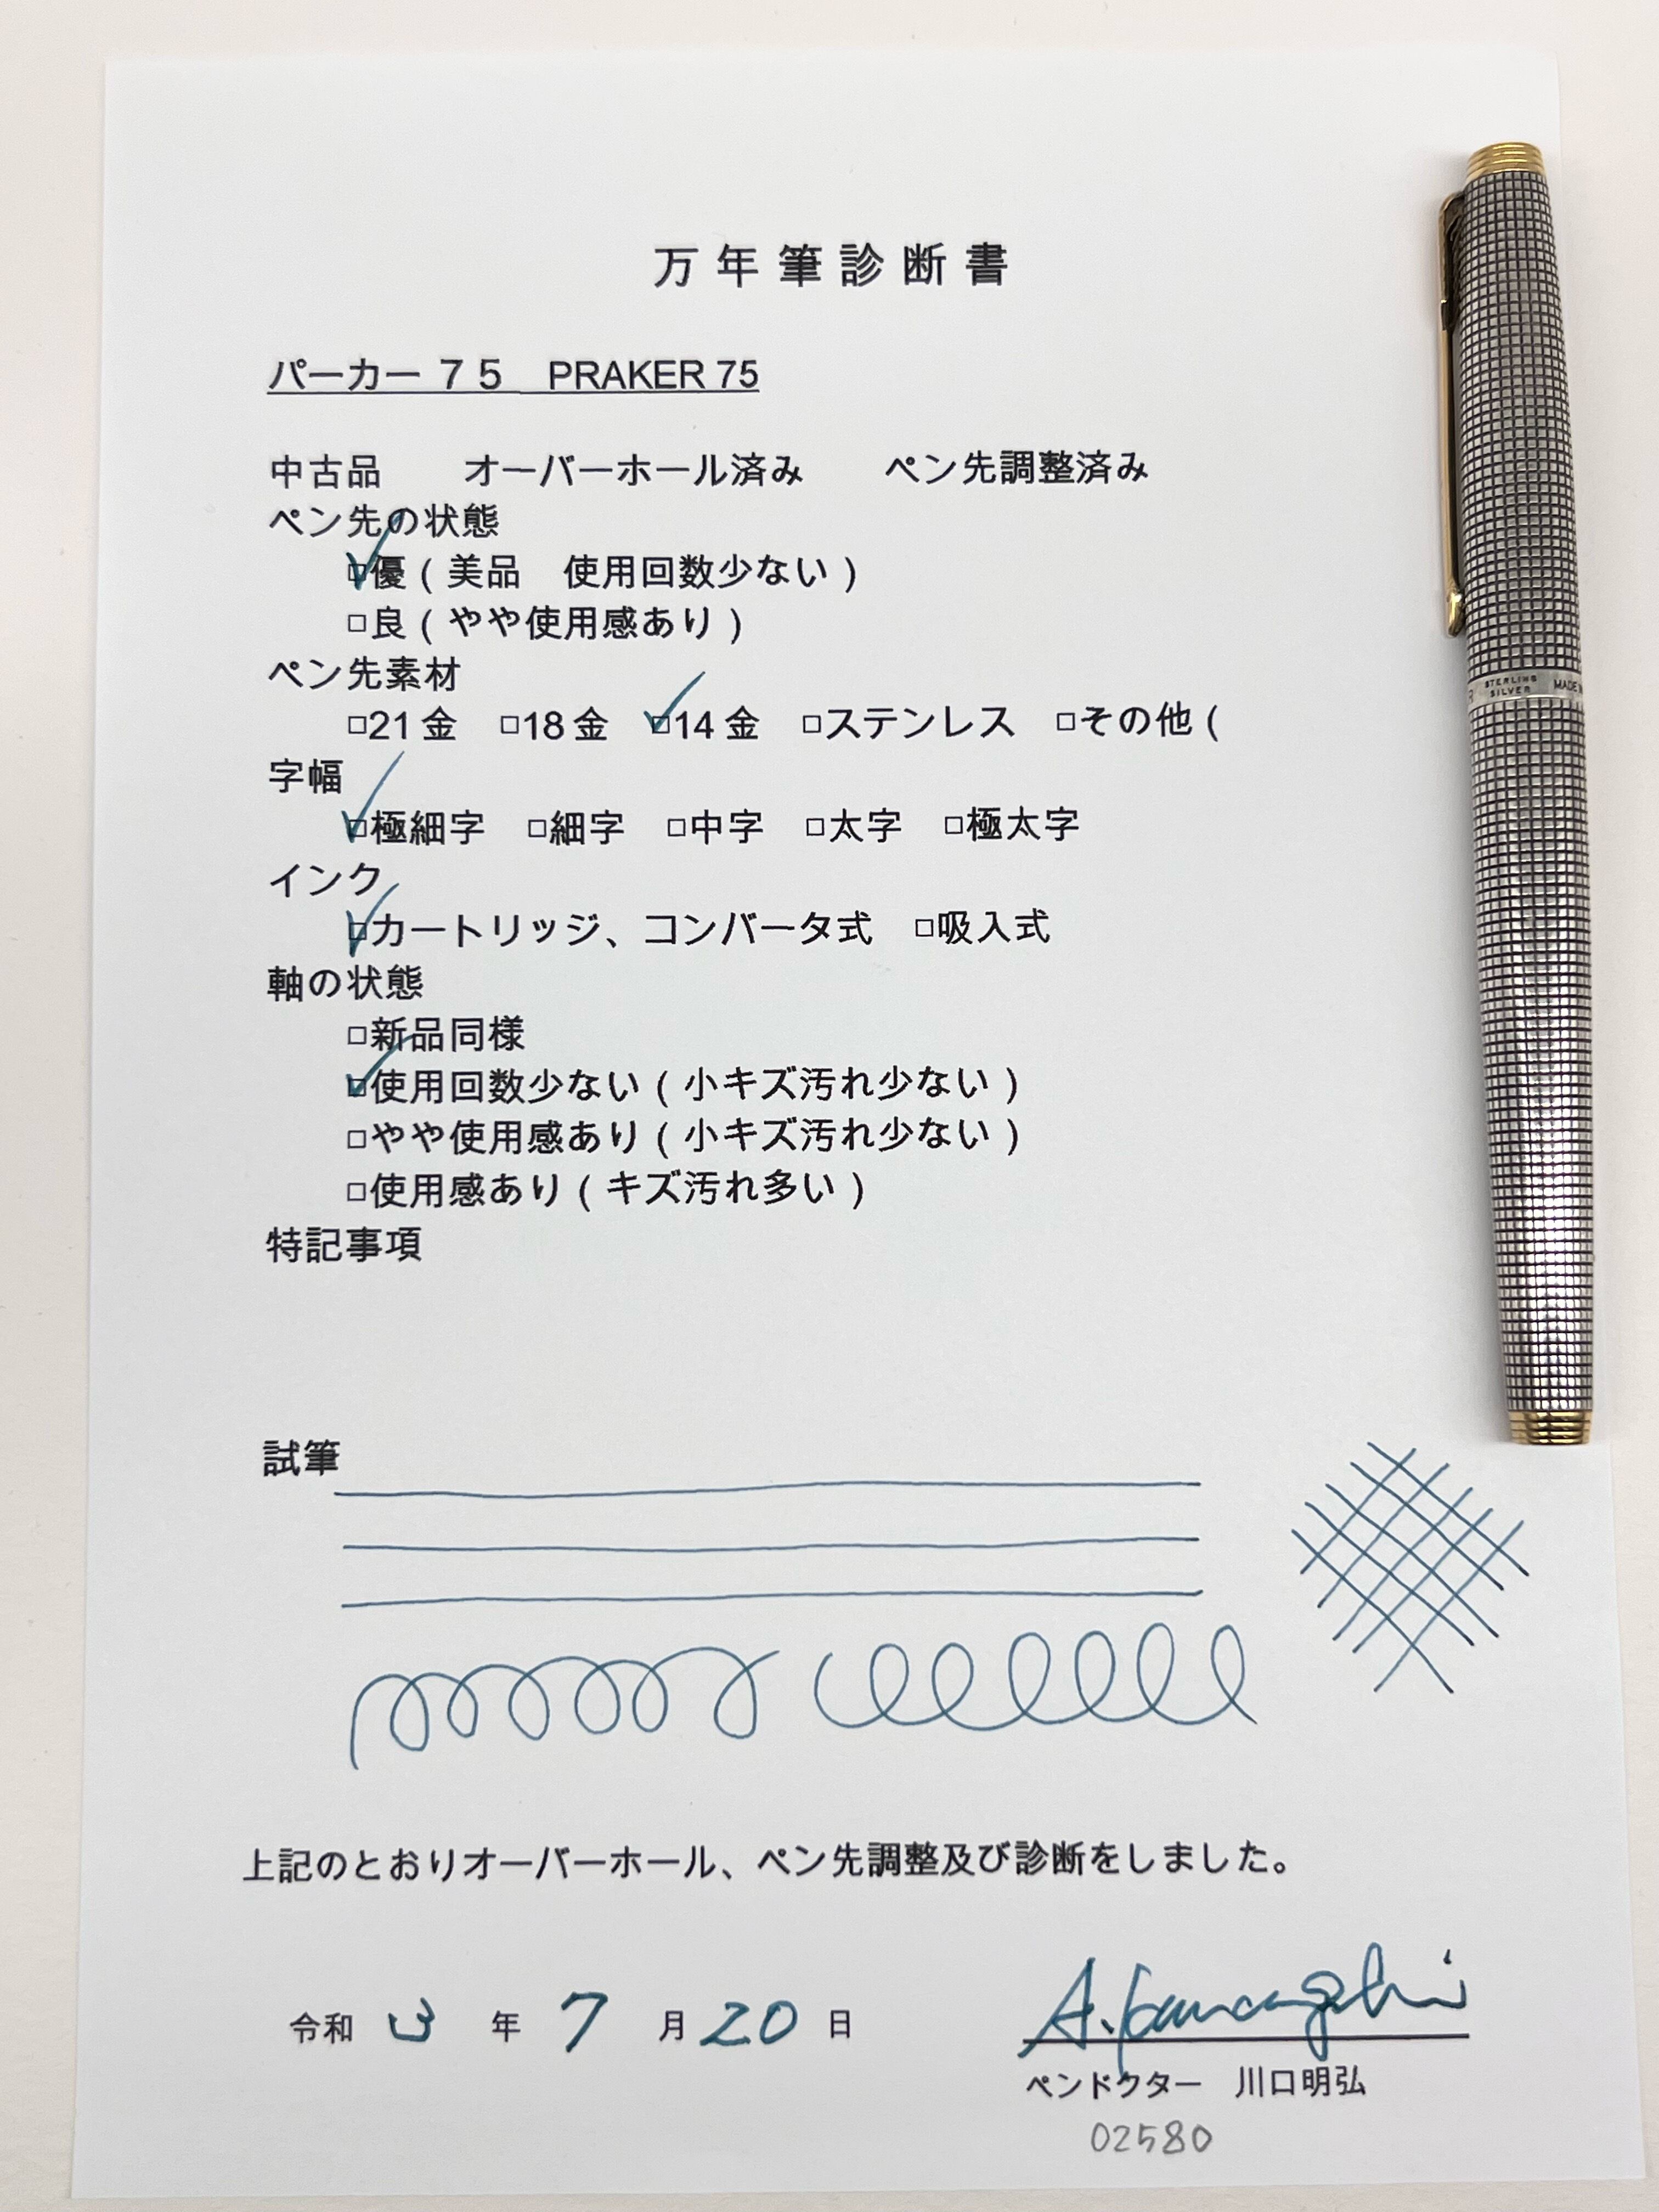 万年筆診断書
パーカー７５　PRAKER 75
中古品　　オーバーホール済み　　ペン先調整済み
ペン先の状態
□優（美品　使用回数少ない）
□良（やや使用感あり）
ペン先素材
□21金　□18金　□14金　□ステンレス　□その他（
字幅
□極細字　□細字　□中字　□太字　□極太字
インク
□カートリッジ、コンバータ式　□吸入式
軸の状態
□新品同様
□使用回数少ない（小キズ汚れ少ない）
□やや使用感あり（小キズ汚れ少ない）
□使用感あり（キズ汚れ多い）
特記事項
試筆
上記のとおりオーバーホール、ペン先調整及び診断をしました。
令和 3 年 7 月 20 日
A. Kawaguchi
ペンドクター　川口明弘
02580
STERLING
SILVER
MADE IN